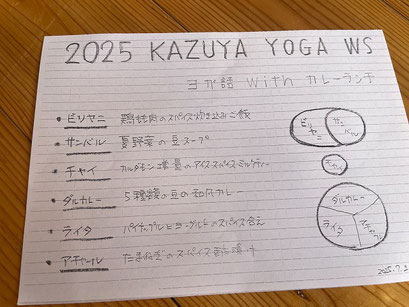 2025 KAZUYA YOGA WS
ヨガ話 with カレーランチ
・ビリヤニ 鶏もも肉のスパイス炊き込みご飯
・サンバル 夏野菜の豆スープ
・チャイ カルダモン増量のアイススパイスミルクティー
・ダルカレー 5種類の豆の和風カレー
・ライタ パイナップルとヨーグルトのスパイス合え
・アチャール たまねぎのスパイス
ビリヤニ
サンバル
チャイ
ダルカレー
ライタ
アチャール
2025.7.2